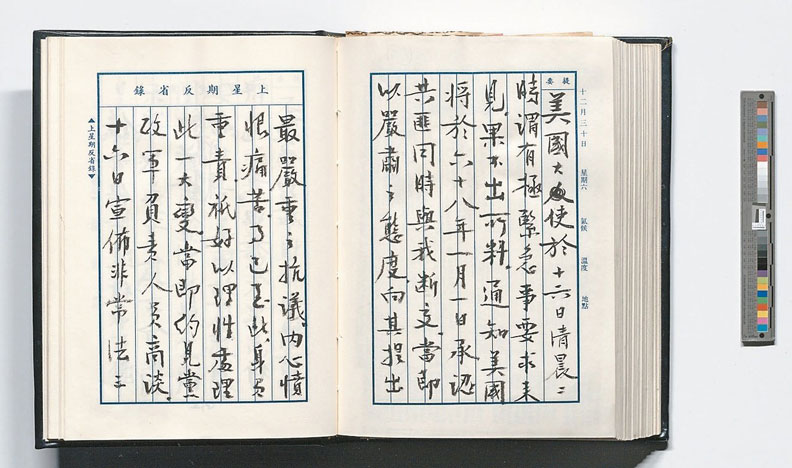 提要
十二月三十日 星期六 氣候 溫度 地點
美國大使於十六日清晨二
時謂有極緊急事要求来
見。果不出所料。通知美國
將於六十八年一月一日承認
共匪同時與我斷交。當即
以嚴肅之態度向其提出
上星期反省錄
最嚴重之抗議。內心憤
恨痛苦。事已至此。身負
重責。祇好以理性處理
此一大變。當即約見黨
政軍負責人員商談。
十六日宣佈非常法三
▲上星期反省錄▼